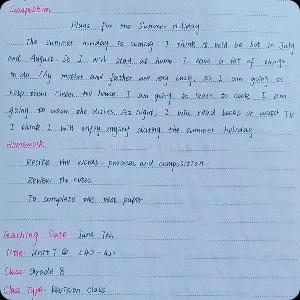 Composition
Plans for the Summer Holiday
The summer horiday is coming. I think it will be hot in July
and August. So I will stay at home. I have a lot of things
to do. My mother and father are very busy, so I am going to
help them clean the house. I am going to learn to cook. I am
going to wash the dishes. At night, I will read books or watch TV
I think I will enjoy myself during the summer holiday
Homework
Recite the words, phrases and composition
Review the notes
To complete the test paper
Teaching Date June 7th
Title: Unit 7
Class: Grade 8
Class Type: Revision class